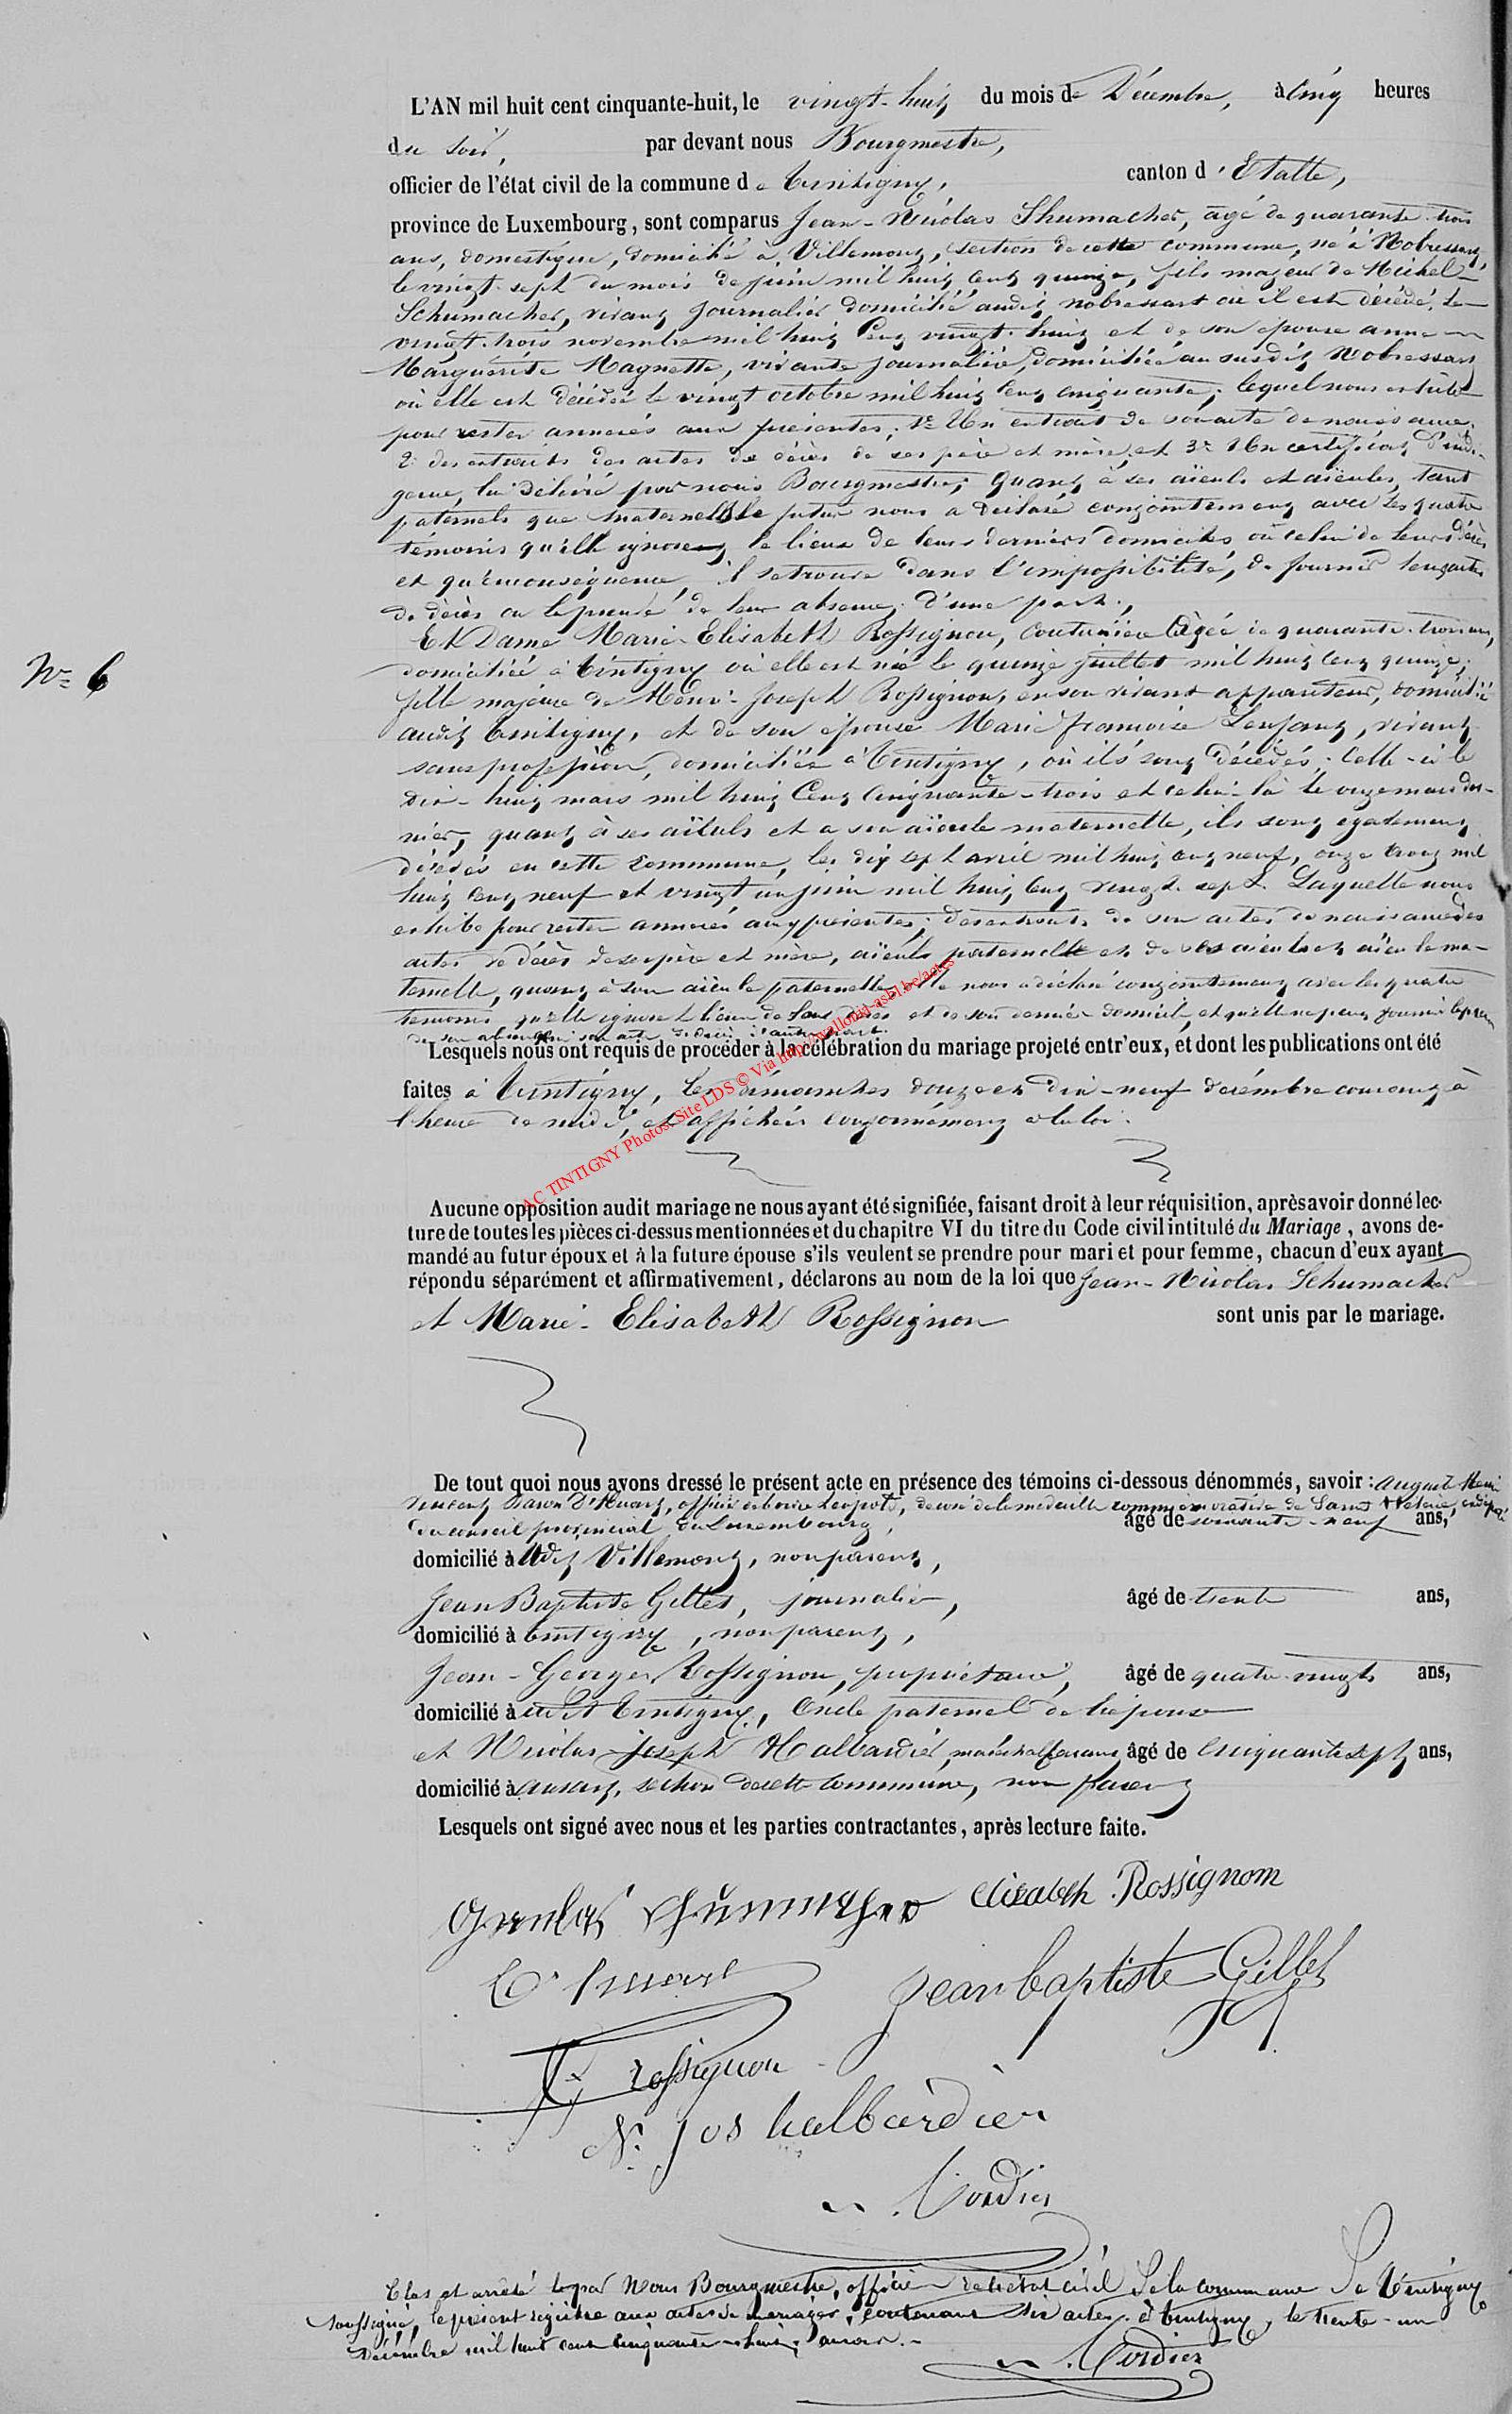 L'AN mil huit cent cinquante-huit, le vingt-huit du mois de Décembre, à cinq heures
du soir, par devant nous Bourgmestre,
officier de l'état civil de la commune de Tintigny, canton d'Etalle,
province de Luxembourg, sont comparus Jean-Nicolas Shumacher, âgé de quarante-trois
ans, domestique, domicilié à Villemont, section de cette commune, né à Nobressart,
le vingt-sept du mois de juin mil huit cent quinze, fils majeur de Michel
Schumacher, vivant journalier domicilié audit Nobressart où il est décédé, le
vingt-trois novembre mil huit cent vingt-huit et de son épouse anne
Marguerite Magnette, vivante journalière, domiciliée au susdit Nobressart
où elle est décédée le vingt octobre mil huit cent cinquante; lequel nous exhibe
pour rester annexés aux présentes; 1° Un extrait de son acte de naissance
2° des extraits des actes de décès de ses père et mère, et 3° Un certificat d'indi-
gence, lui délivré par nous Bourgmestre; quant à ses aïeuls et aïeules, tant
paternels que maternels le futur nous a déclaré conjointement avec les quatre
témoins qu'ils ignorent le lieux de leurs derniers domiciles où celui de leurs décès
et qu'en conséquence, il se trouve dans l'impossibilité, de fournir leurs actes
de décès ou la preuve de leur absence, d'une part.,
Et Dame Marie-Elisabeth Rossignon, couturière âgée de quarante-trois ans,
N° 6
domiciliée à Tintigny où elle est née le quinze juillet mil huit cent quinze;
fille majeure de Henri-Joseph Rossignon, en son vivant appariteur, domicilié
audit Tintigny, et de son épouse Marie françoise Lenfant, vivant
sans profession, domiciliée à Tintigny, où ils sont décédés; celle-ci le
dix-huit mars mil huit cent cinquante-trois et celui-là le onze mars der-
nier, quant à ses aïeuls et a son aïeule maternelle, ils sont également
décédés en cette commune, les dix sept avril mil huit cent neuf, onze août mil
huit cent neuf et vingt un juin mil huit cent vingt-sept. Laquelle nous
exhibe pour rester annexés aux présentes; des extraits de son acte de naissance des
actes de décès de ses père et mère, aïeuls paternelle et de ses aïeul et aïeule ma-
ternelle, quant à son aïeule paternelle, elle nous a déclaré conjointement avec les quatre
témoins qu'elle ignore le lieu de son décès et de son dernier domicile, et qu'elle ne peut fournir la preuve
de son absence ni son acte de décès d'autre part.
Lesquels nous ont requis de procéder à la célébration du mariage projeté entr'eux, et dont les publications ont été
faites à Tintigny, les dimanches douze et dix-neuf décembre courant à
l'heure de midi, et affichées conformément à la loi.
AC TINTIGNY Photos: Site LDS © Via http://wallonia-asbl.be/actes
Aucune opposition audit mariage ne nous ayant été signifiée, faisant droit à leur réquisition, après avoir donné lec-
ture de toutes les pièces ci-dessus mentionnées et du chapitre VI du titre du Code civil intitulé du Mariage, avons de-
mandé au futur époux et à la future épouse s'ils veulent se prendre pour mari et pour femme, chacun d'eux ayant
répondu séparément et affirmativement, déclarons au nom de la loi que Jean-Nicolas Schumacher
et Marie-Elisabeth Rossignon sont unis par le mariage.
De tout quoi nous avons dressé le présent acte en présence des témoins ci-dessous dénommés, savoir: auguste Henri
Vincent Baron D'Huart, officier de l'ordre Léopold, décoré de la médaille commémorative de Sainte Hélène,
du conseil provincial du Luxembourg, âgé de soixante-neuf ans,
domicilié à udit Villemont, non parent,
Jean Baptiste Gillet, journalier, âgé de trente ans,
domicilié à Tintigny, non parent,
Jean-Georges Rossignon, propriétaire, âgé de quatre-vingts ans,
domicilié à udit Tintigny, oncle paternel de l'épouse
et Nicolas-Joseph Halbardier, maréchal ferrant âgé de cinquante sept ans,
domicilié à ansart, section de cette commune, non parent
Lesquels ont signé avec nous et les parties contractantes, après lecture faite.
Elisabeth Rossignom
D'huart
Jean baptiste Gillet
rossignon
N. Jos halbardier
Cordier
Clos et arrêté par Nous Bourgmestre, officier de l'état civil de la commune de Tintigny
soussigné, le présent registre aux actes de mariages, contenant six actes. à Tintigny, le trente-un
décembre mil huit cent cinquante-huit, au soir.-
Cordier